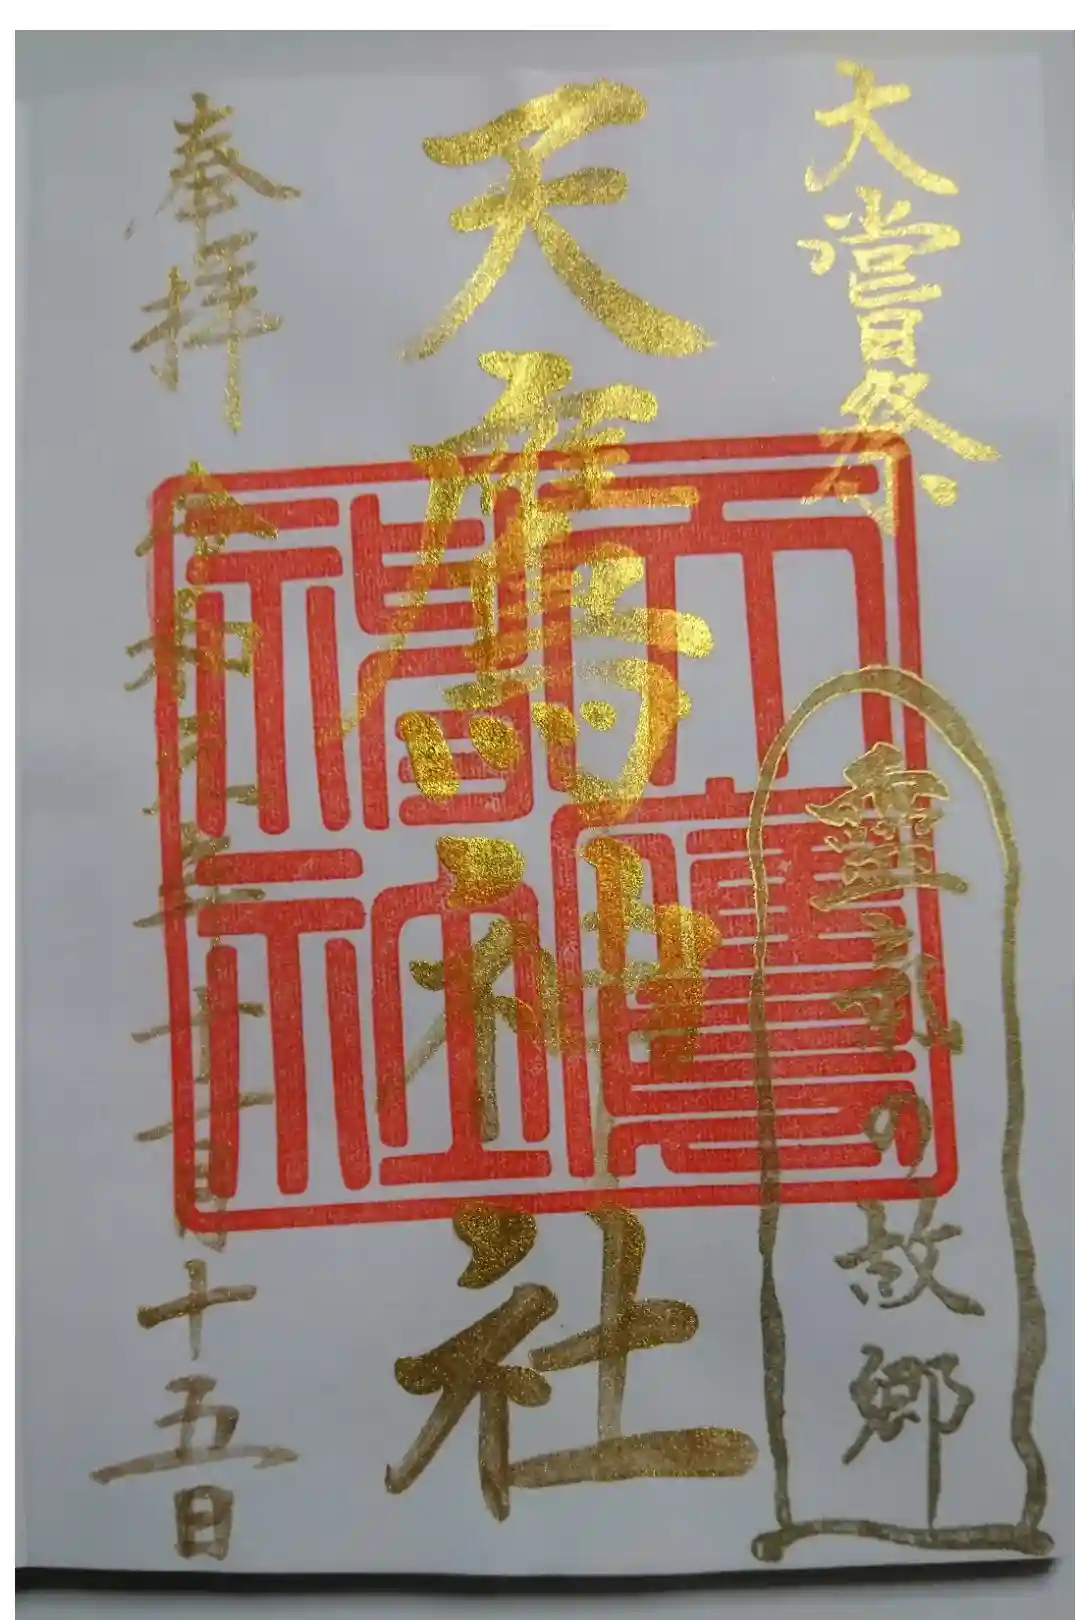 大嘗祭
霊気の故郷
天鷹神社
奉拝
令和元年十一月十五日
天鷹
神社